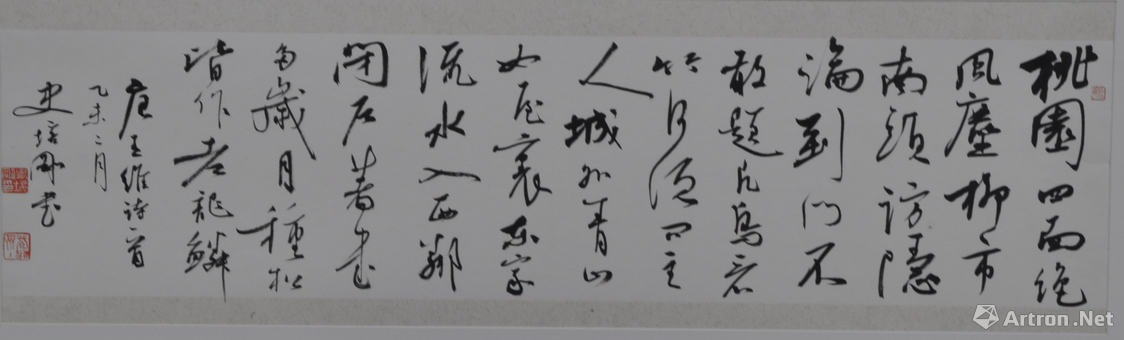 桃園四面絶
風塵柳市
南頭訪隱
淪到門不
敢題凡鳥看
竹何須問主
人城外青山
如屋裏東家
流水入西鄰
閉户著書
多歲月種松
皆作老龍鱗
唐王維詩一首
乙未二月
史培剛書
Artron.Net